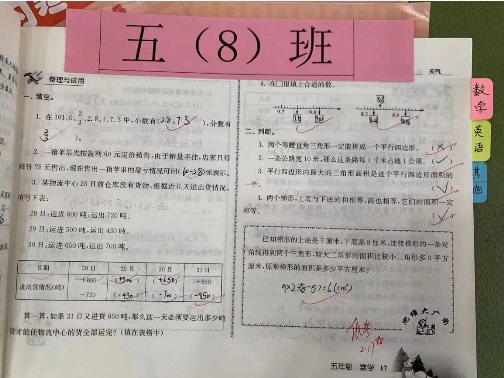 五（8）班
整理与应用
一、填空。
1. 在101,0,2/3,2.8,1,7.3中,小数有(2.8,7.3),分数有
2. 一箱苹果先按盈利60元定价销售,由于销量不佳,店家只得
降价28元售出,现在售出一箱苹果的盈亏情况可用(60-28)元表示。
3. 某物流中心28日前仓库没有货物,根据近几天进出货情况,
填写下表:
28日:运进800吨,运出720吨。
29日:运进500吨,运出430吨。
30日:运进650吨,运出700吨。
日期 28日 29日 30日 31日
进出货情况(吨) +800 (+500) (+650) +850
-720 (-430) (-700) (-950)
算一算,如果31日又进货850吨,那么这一天必须要运出多少吨
货才能使物流中心的货全部运完?(填在表格中)
天气
4. 在□里填上合适的数。
9.7
二、判断。
1. 两个等腰直角三角形一定能拼成一个平行四边形。
2. 一条公路宽10米,那么这条路每1千米占地1公顷。
3. 平行四边形内最大的三角形面积是这个平行四边形面积的
一半。
4. 两个梯形,上底与下底的和相等,高也相等,它们的面积一定
相等。
已知梯形的上底是5厘米,下底是8厘米,连接梯形的一条对
角线得到两个三角形,较大三角形的面积比较小三角形多9平方
厘米,原来梯形的面积是多少平方厘米?
思维大广角
2.17
五年级 数学 17
数学
英语
其他